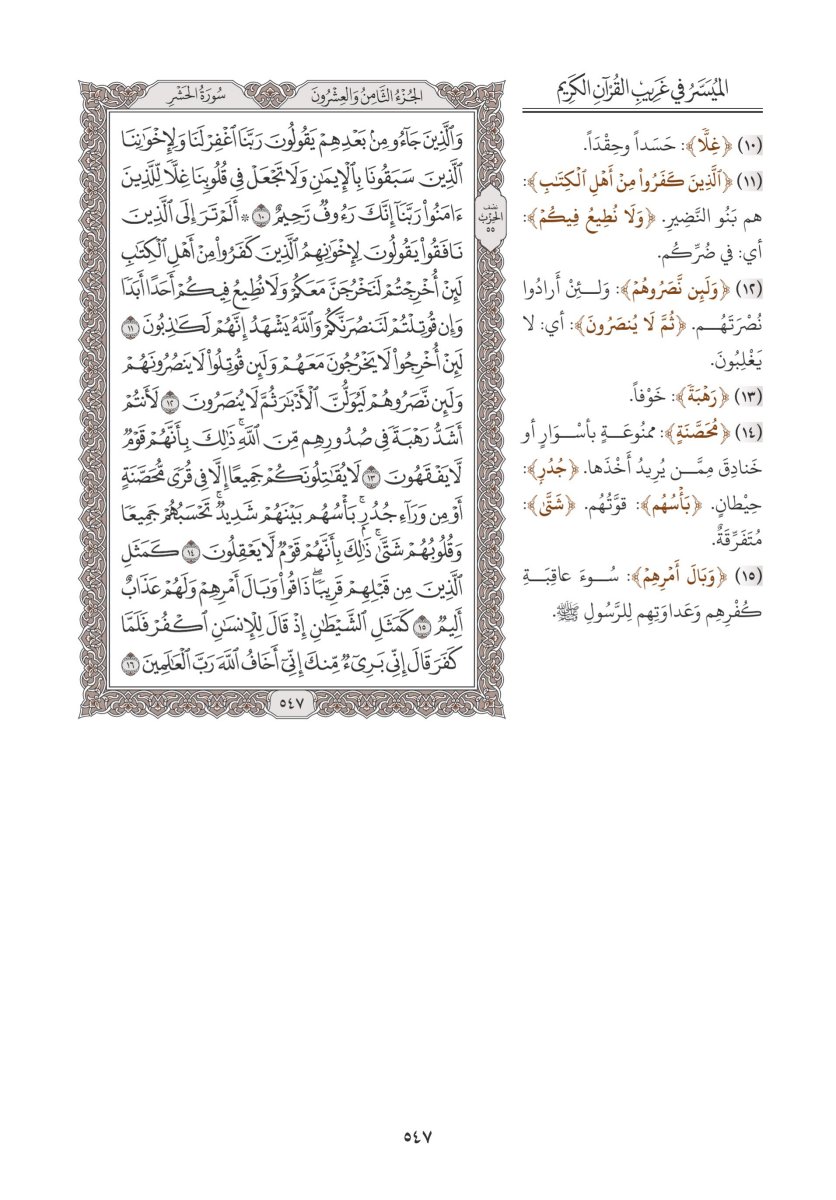 الميَسَّرُ في غَرِيبِ القُرْآنِ الكَرِيمِ
(١٠) ﴿غِلًّا﴾: حَسَداً وحِقْدَاً.
(١١) ﴿ٱلَّذِينَ كَفَرُواْ مِنْ أَهْلِ ٱلْكِتَٰبِ﴾:
هم بَنُو النَّضِيرِ. ﴿وَلَا نُطِيعُ فِيكُمْ﴾:
أي: في ضُرِّكُم.
(١٢) ﴿وَلَئِن نَّصَرُوهُمْ﴾: وَلَــئِنْ أَرادُوا
نُصْرَتَهُــم. ﴿ثُمَّ لَا يُنصَرُونَ﴾: أي: لا
يَغْلِبُونَ.
(١٣) ﴿رَهْبَةً﴾: خَوْفاً.
(١٤) ﴿مُّحَصَّنَةٍ﴾: ممنُوعَــةٍ بأسْــوَارٍ أو
خَنادِقَ مِمَّــن يُرِيدُ أَخْذَها. ﴿جُدُرٍ﴾:
حِيْطانٍ. ﴿بَأْسُهُم﴾: قوَّتُهُم. ﴿شَتَّىٰ﴾:
مُتَفَرِّقَةٌ.
(١٥) ﴿وَبَالَ أَمْرِهِمْ﴾: سُــوءَ عاقِبَــةِ
كُفْرِهِم وَعَداوَتِهِم لِلرَّسُولِ ﷺ.
الجُزْءُ الثَّامِنُ وَالعِشْرُونَ
سُورَةُ الحَشْرِ
وَٱلَّذِينَ جَآءُو مِنۢ بَعْدِهِمْ يَقُولُونَ رَبَّنَا ٱغْفِرْ لَنَا وَلِإِخْوَٰنِنَا
ٱلَّذِينَ سَبَقُونَا بِٱلْإِيمَٰنِ وَلَا تَجْعَلْ فِي قُلُوبِنَا غِلًّا لِّلَّذِينَ
ءَامَنُواْ رَبَّنَآ إِنَّكَ رَءُوفٌ رَّحِيمٌ ١٠ ۞ أَلَمْ تَرَ إِلَى ٱلَّذِينَ
نَافَقُواْ يَقُولُونَ لِإِخْوَٰنِهِمُ ٱلَّذِينَ كَفَرُواْ مِنْ أَهْلِ ٱلْكِتَٰبِ
لَئِنْ أُخْرِجْتُمْ لَنَخْرُجَنَّ مَعَكُمْ وَلَا نُطِيعُ فِيكُمْ أَحَدًا أَبَدًا
وَإِن قُوتِلْتُمْ لَنَنصُرَنَّكُمْ وَٱللَّهُ يَشْهَدُ إِنَّهُمْ لَكَٰذِبُونَ ١١
لَئِنْ أُخْرِجُواْ لَا يَخْرُجُونَ مَعَهُمْ وَلَئِن قُوتِلُواْ لَا يَنصُرُونَهُمْ
وَلَئِن نَّصَرُوهُمْ لَيُوَلُّنَّ ٱلْأَدْبَٰرَ ثُمَّ لَا يُنصَرُونَ ١٢ لَأَنتُمْ
أَشَدُّ رَهْبَةً فِي صُدُورِهِم مِّنَ ٱللَّهِۚ ذَٰلِكَ بِأَنَّهُمْ قَوْمٌ
لَّا يَفْقَهُونَ ١٣ لَا يُقَٰتِلُونَكُمْ جَمِيعًا إِلَّا فِي قُرًى مُّحَصَّنَةٍ
أَوْ مِن وَرَآءِ جُدُرٍۭۚ بَأْسُهُم بَيْنَهُمْ شَدِيدٌۚ تَحْسَبُهُمْ جَمِيعًا
وَقُلُوبُهُمْ شَتَّىٰۚ ذَٰلِكَ بِأَنَّهُمْ قَوْمٌ لَّا يَعْقِلُونَ ١٤ كَمَثَلِ
ٱلَّذِينَ مِن قَبْلِهِمْ قَرِيبًاۖ ذَاقُواْ وَبَالَ أَمْرِهِمْ وَلَهُمْ عَذَابٌ
أَلِيمٌ ١٥ كَمَثَلِ ٱلشَّيْطَٰنِ إِذْ قَالَ لِلْإِنسَٰنِ ٱكْفُرْ فَلَمَّا
كَفَرَ قَالَ إِنِّي بَرِيٓءٌ مِّنكَ إِنِّيٓ أَخَافُ ٱللَّهَ رَبَّ ٱلْعَٰلَمِينَ ١٦
نصف
الحزب
٥٥
٥٤٧
٥٤٧